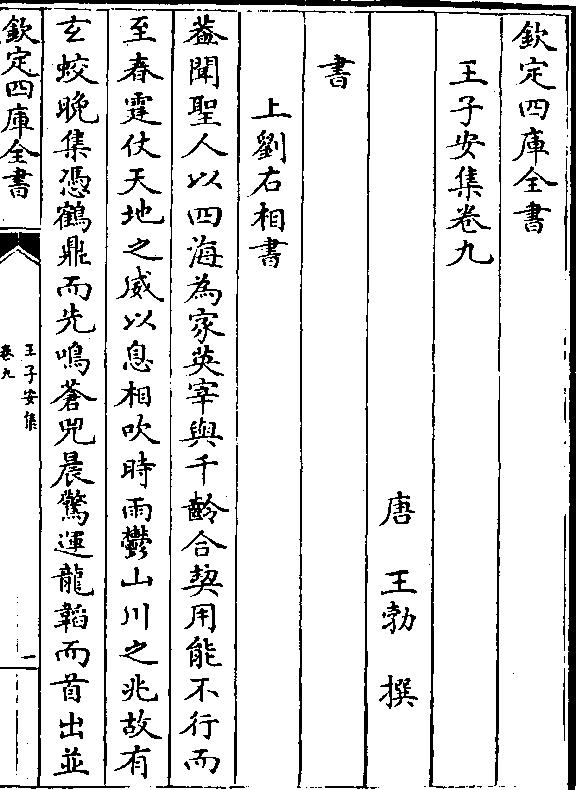 欽定四庫全書
王子安集卷九
唐 王勃 撰
書
上劉右相書
葢聞聖人以四海為家英宰與千齡合契用能不行而
至春霆仗天地之威以息相吹時雨鬱山川之兆故有
玄蛟晚集憑鶴鼎而先鳴蒼兕晨驚運龍韜而首出並
欽定四庫全書
王子安集
卷九
一